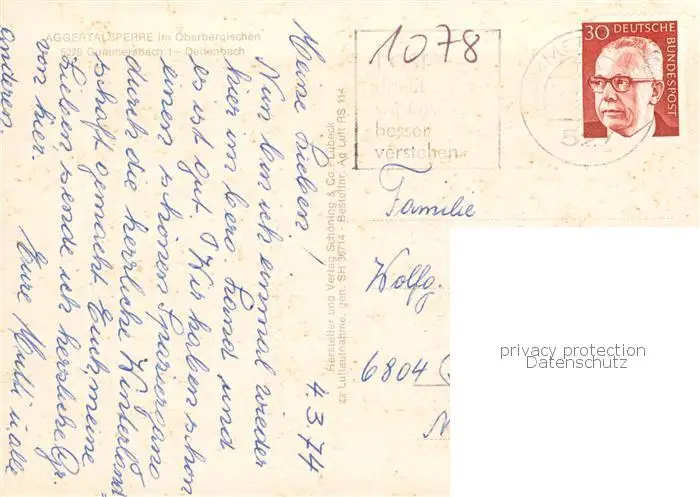 AGGERTALSPERRE im Oberbergischen
5270 Gummersbach 1 - Derlenbach
4.3.74
Meine Lieben!
Nun bin ich einmal wieder
hier im berg. Land und
es ist gut. Wir haben schon
einen schönen Spaziergang
durch die herrliche Winterland
schaft gemacht. Euch meine
Lieben sende ich herzliche Gr.
von hier.
Eure Mutti u. alle
anderen.
Hersteller und Verlag Schöning & Co. · Lübeck
zz Luftaufnahme, gen. SH 36714 - Bestellnr. Ag Luft RS 114
1078
besser
verstehen
527
30 DEUTSCHE
BUNDESPOST
Familie
Wolfg.
6804
privacy protection
Datenschutz